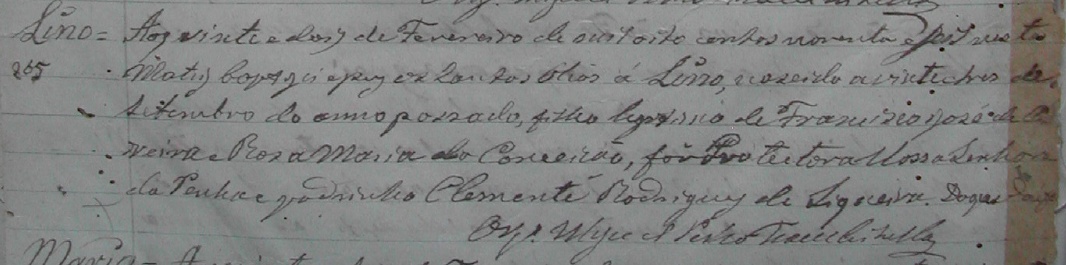 Lino = Aos vinte e dois de Fevereiro de mil oito centos noventa e seis nesta
265 Matriz baptizei e puz os Santos Oleos á Lino, nascido a vinte tres de
Setembro do anno passado, filho legitimo de Francisco José de
veira e Rosa Maria da Conceição, foi Protectora Nossa Senhora
da Penha e padrinho Clemente Rodrigues de Siqueira. Do que
O Vigr.
Maria =